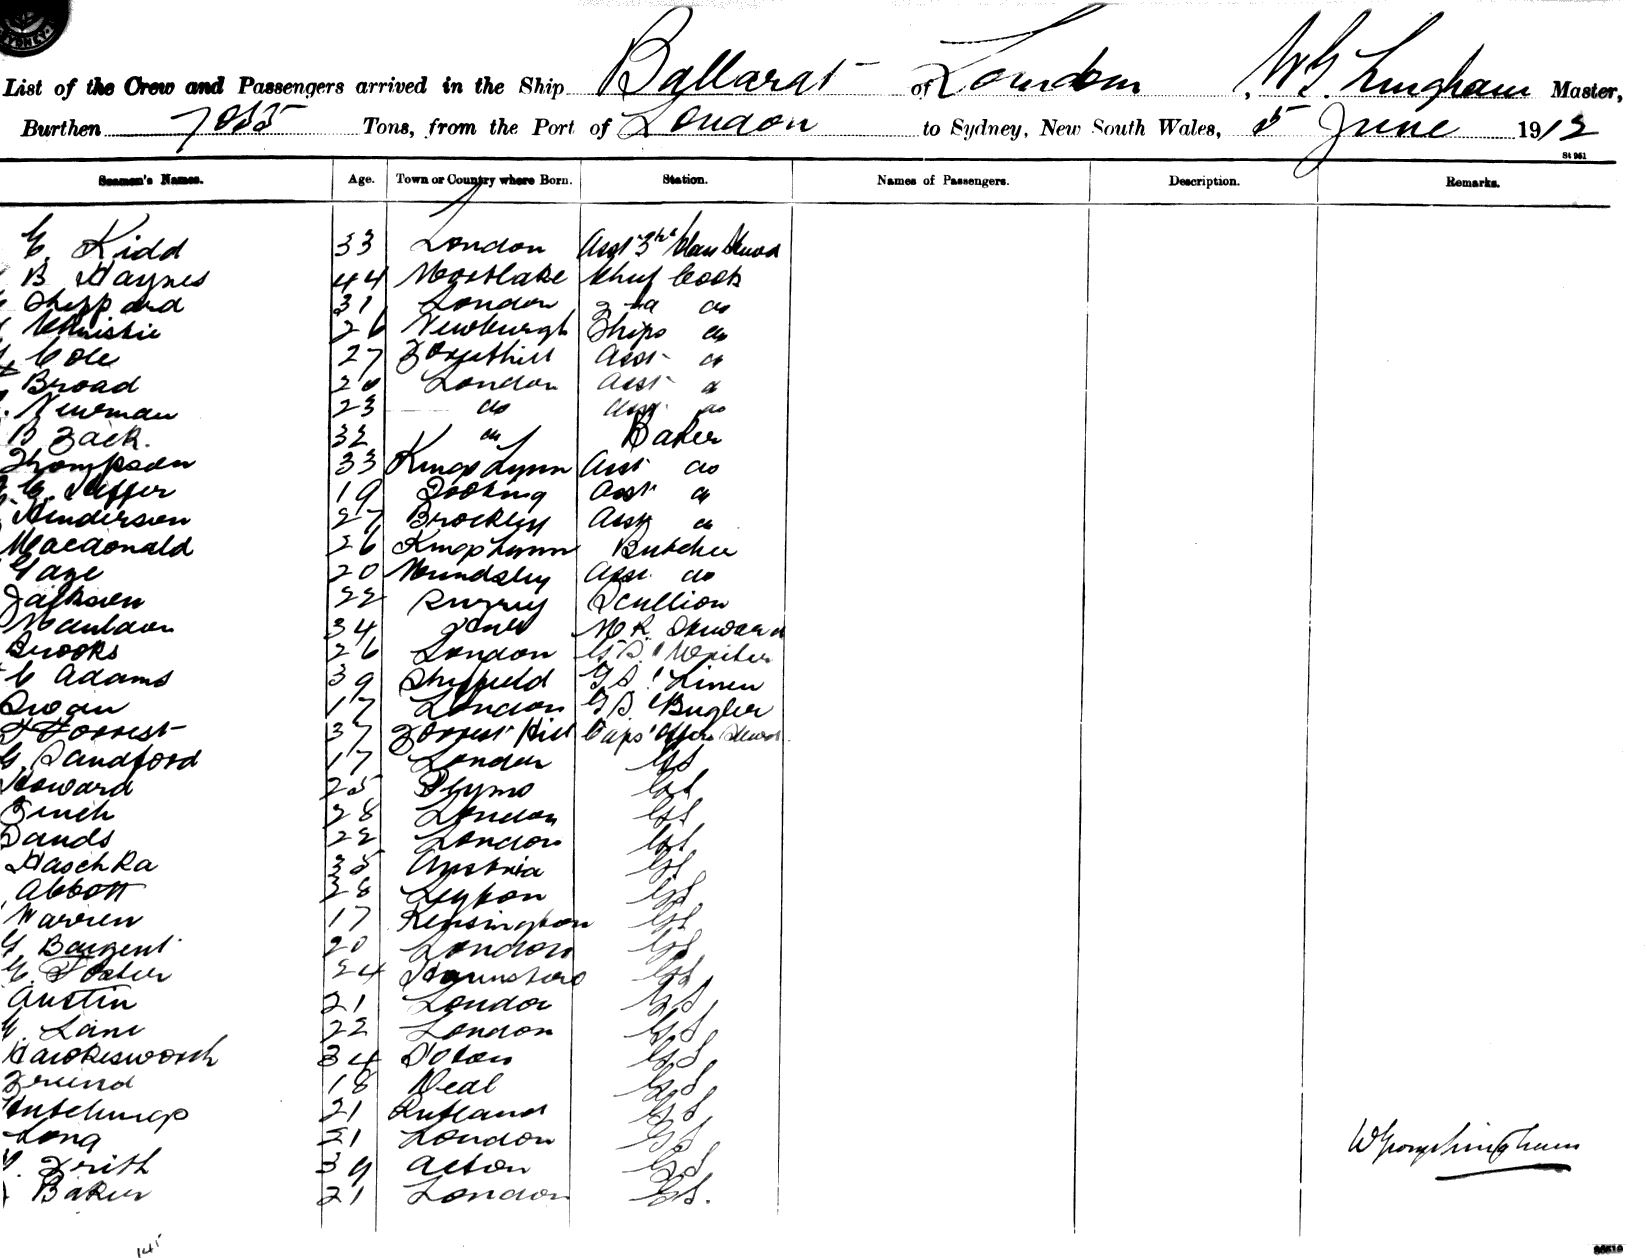 SYDNEY
List of the Crew and Passengers arrived in the Ship Ballarat of London W G Lingham Master,
Burthen 7055 Tons, from the Port of London to Sydney, New South Wales, 5 June 1912
St 961
Seamen's Names. Age. Town or Country where Born. Station. Names of Passengers. Description. Remarks.
E. Kidd 33 London Asst 3rd Class Steward
B Haynes 44 Mortlake Chief Cook
Sheppard 31 London 2nd do
Christie 26 Newburgh Ships do
Cole 27 Foresthill Asst do
Broad 20 London Asst do
Newman 23 do Asst do
B Zack. 32 do Baker
Thompson 33 Kings Lynn Asst do
19 Tooting Asst do
Henderson 27 Brockley Asst do
Macdonald 26 Kings Lynn Butcher
Gaze 20 Mundsley Asst do
Jackson 22 Surrey Scullion
Mauldon 34 M R. Steward
Brooks 26 London G S. Writer
C Adams 39 Sheffield G S. Linen
Swan 17 London G S. Bugler
Forrest 37 Forrest Hill Capt Offrs Steward
G. Sandford 17 London GS
Howard 25 Plymo GS
Finch 28 London GS
Sands 22 London GS
Haschka 35 Austria GS
Abbott 28 Leyton GS
Warren 17 Kensington GS
G Bargent 20 London GS
E. Foster 24 GS
Austin 21 London GS
E. Lane 22 London GS
Hawkesworth 34 GS
Friend 18 Deal GS
Hutchings 21 Rutland GS
Long 21 London GS
Frith 39 Acton GS
Baker 21 London GS.
W George Lingham
141